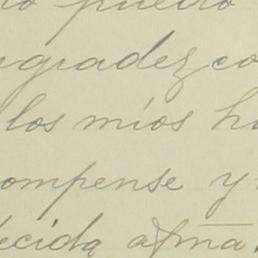 o puedo
gradezco
los míos h
ompense y
ecida afma